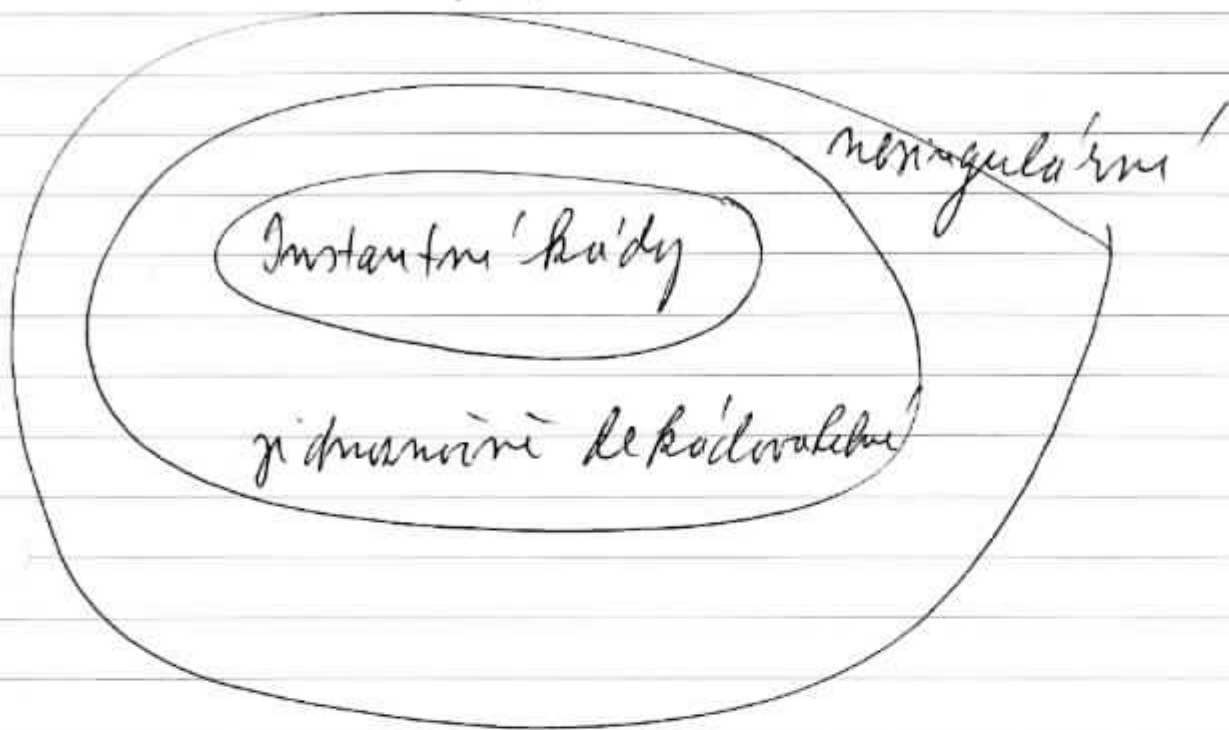 nesingulární
Instantní kódy
jednoznačně dekódovatelné